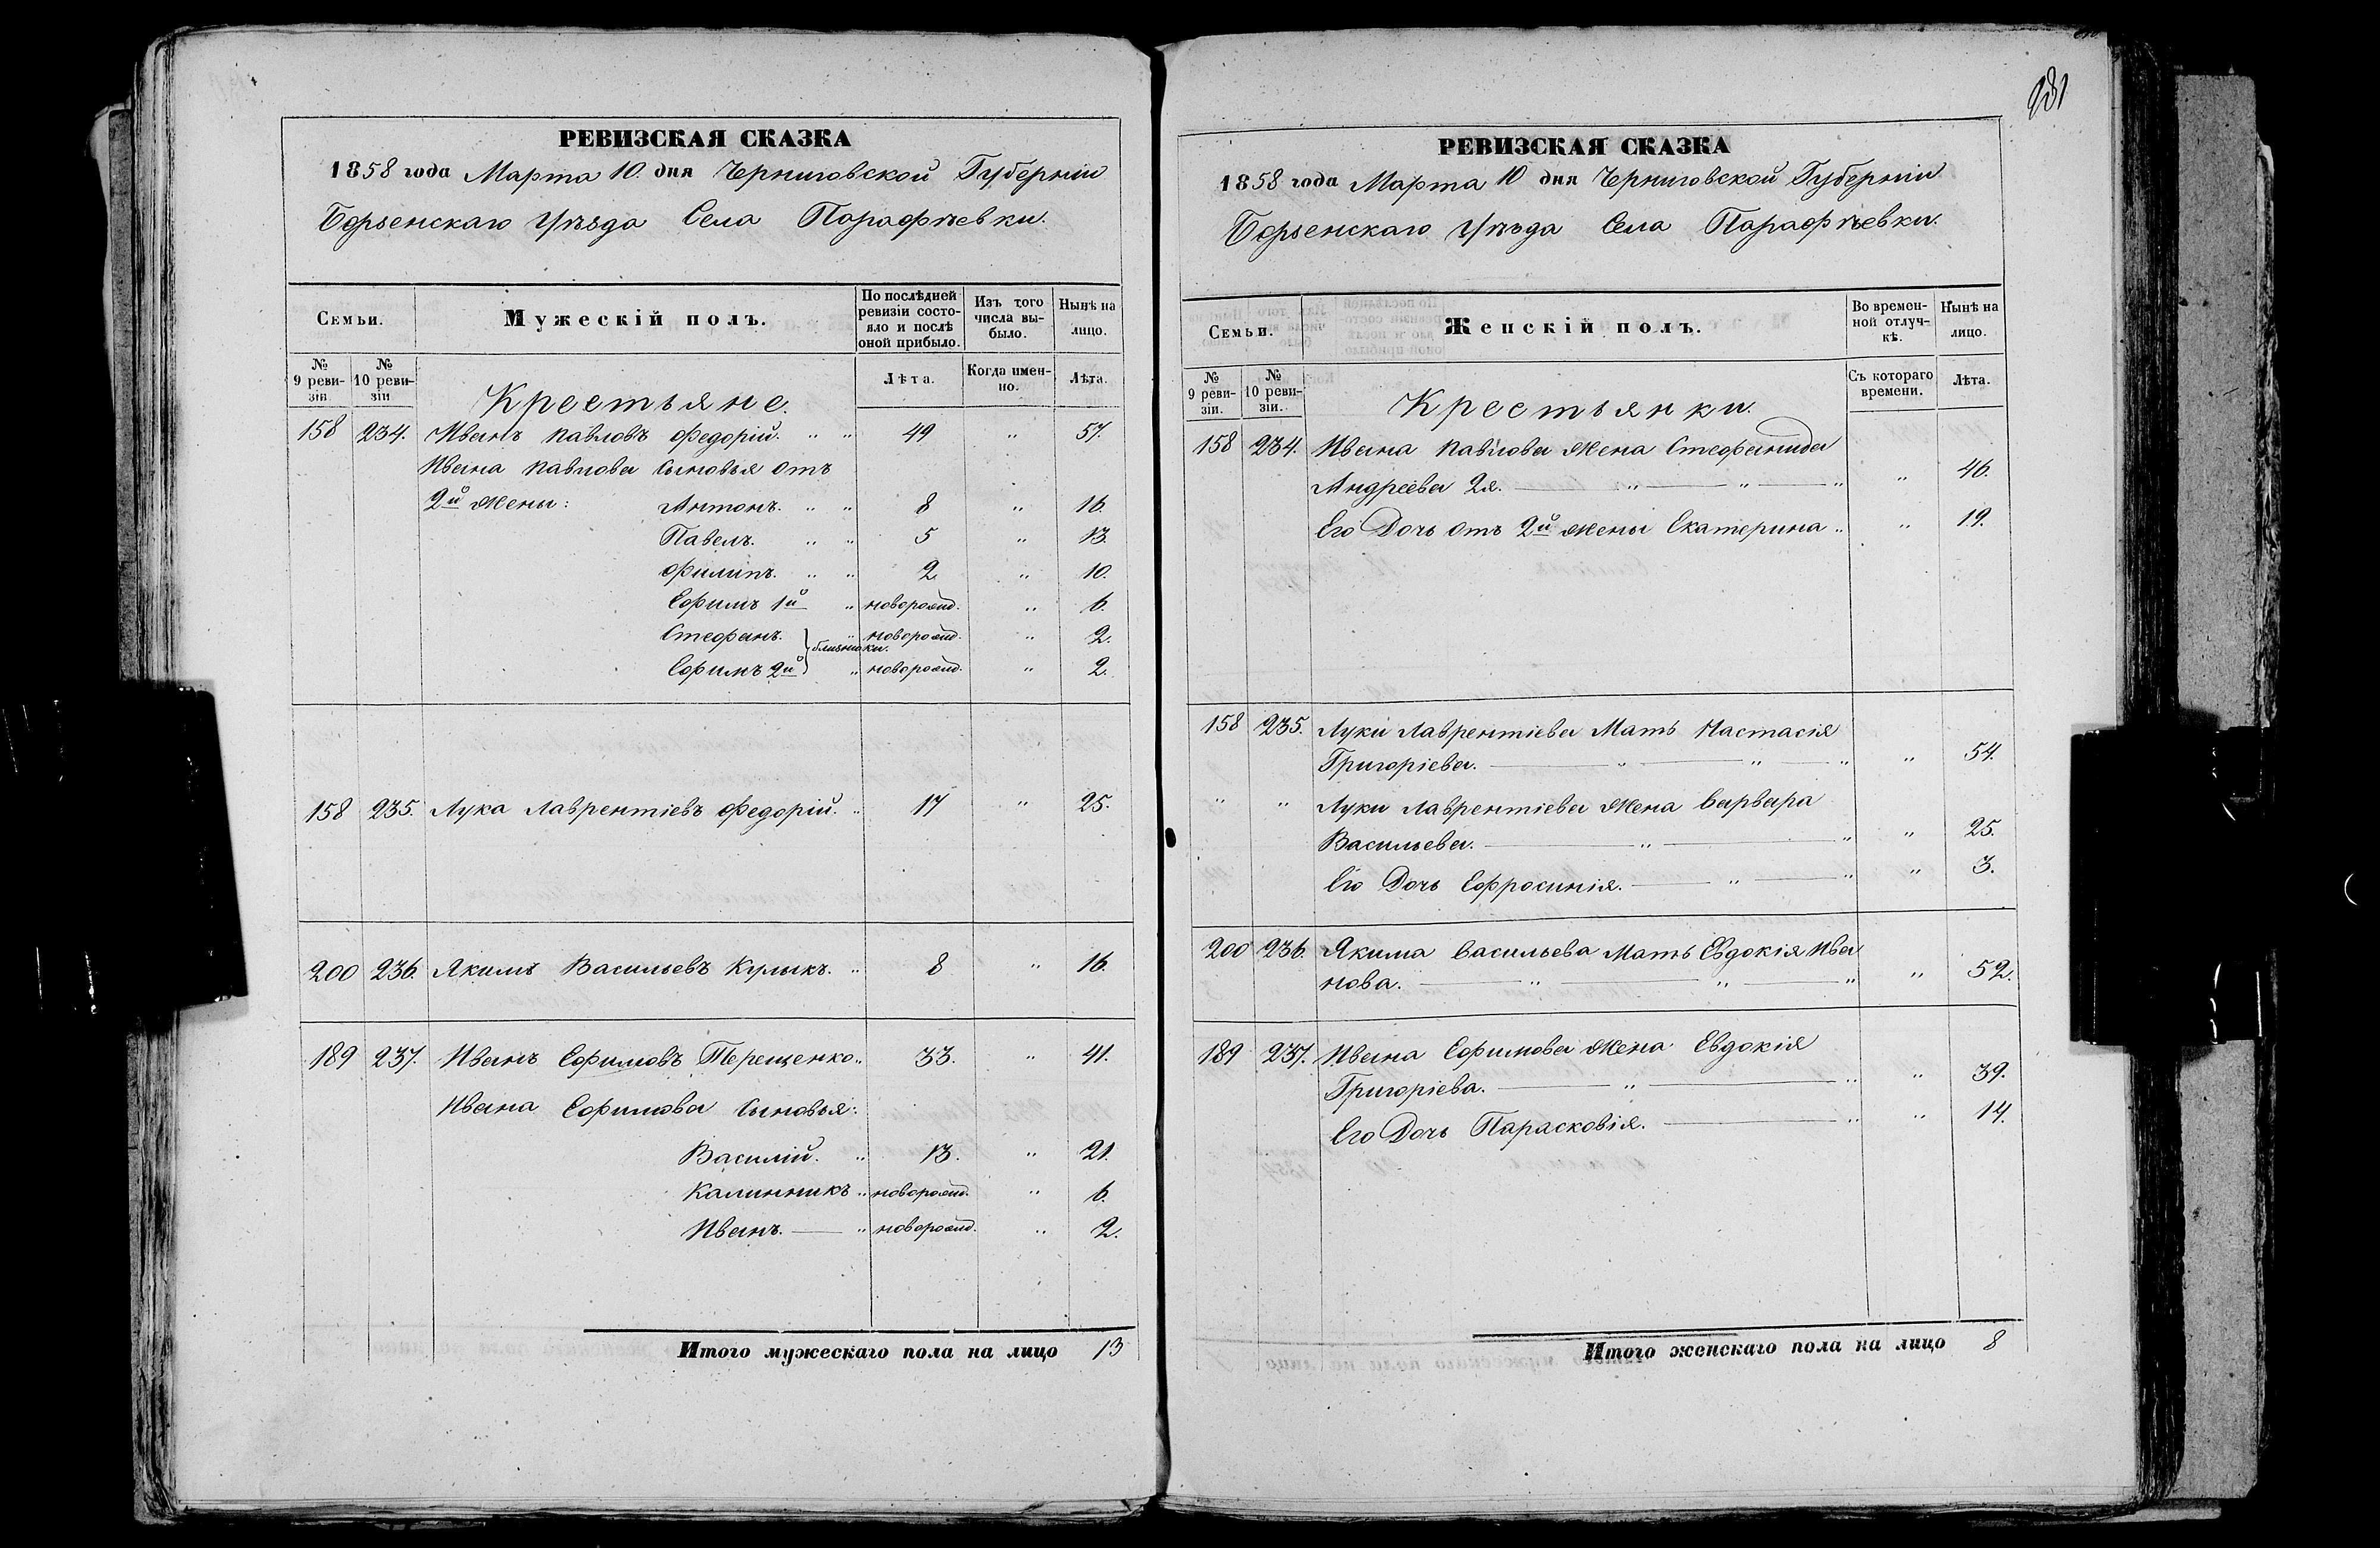 РЕВИЗСКАЯ СКАЗКА
1858 года Марта 10. дня Черниговской Губерніи
Борзенскаго Уѣзда Села Парафѣевки.
Семьи.
Мужескій полъ.
По послѣдней ревизіи состояло и послѣ оной прибыло.
Изъ того числа выбыло.
Нынѣ на лицо.
№ 9 ревизіи
№ 10 ревизіи
Лѣта.
Когда именно.
Лѣта.
Крестьяне.
158 234. Иванъ Павловъ Федорій. " " 49 " 57.
Ивана Павлова Сыновья отъ
2й Жены: Антонъ. " " 8 " 16.
Павелъ. " " 5 " 13.
Филипъ. " " 2 " 10.
Ефимъ 1й " новорожд. " 6.
Стефанъ. " новорожд. " 2.
близнюки.
Ефимъ 2й " новорожд. " 2.
158 235. Лука Лаврентіевъ Федорій. " 17 " 25.
200 236. Якимъ Васильевъ Кулыкъ. " 8 " 16.
189 237. Иванъ Ефимовъ Терещенко " 33. " 41.
Ивана Ефимова Сыновья:
Василій. " 13. " 21.
Калинникъ " новорожд. " 6.
Иванъ. " новорожд. " 2.
Итого мужескаго пола на лицо 13
231
РЕВИЗСКАЯ СКАЗКА
1858 года Марта 10 дня Черниговской Губерніи
Борзенскаго Уѣзда Села Парафѣевки.
Семьи.
Женскій полъ.
Во временной отлучкѣ.
Нынѣ на лицо.
№ 9 ревизіи.
№ 10 ревизіи.
Съ котораго времени.
Лѣта.
Крестьянки.
158 234. Ивана Павлова Жена Стефанида
Андреева 2я. " " " " 46.
Его Дочь отъ 2й Жены Екатерина " " 19.
158 235. Луки Лаврентіева Мать Настасія
Григоріева. " " " " 54.
" " Луки Лаврентіева Жена Варвара
Васильева. " " " 25.
Его Дочь Ефросинія. " " " 3.
200 236. Якима Васильева Мать Евдокія Ива
нова. " " " " 52.
189 237. Ивана Ефимова Жена Евдокія
Григоріева. " " " 39.
Его Дочь Парасковія. " " 14.
Итого женскаго пола на лицо 8